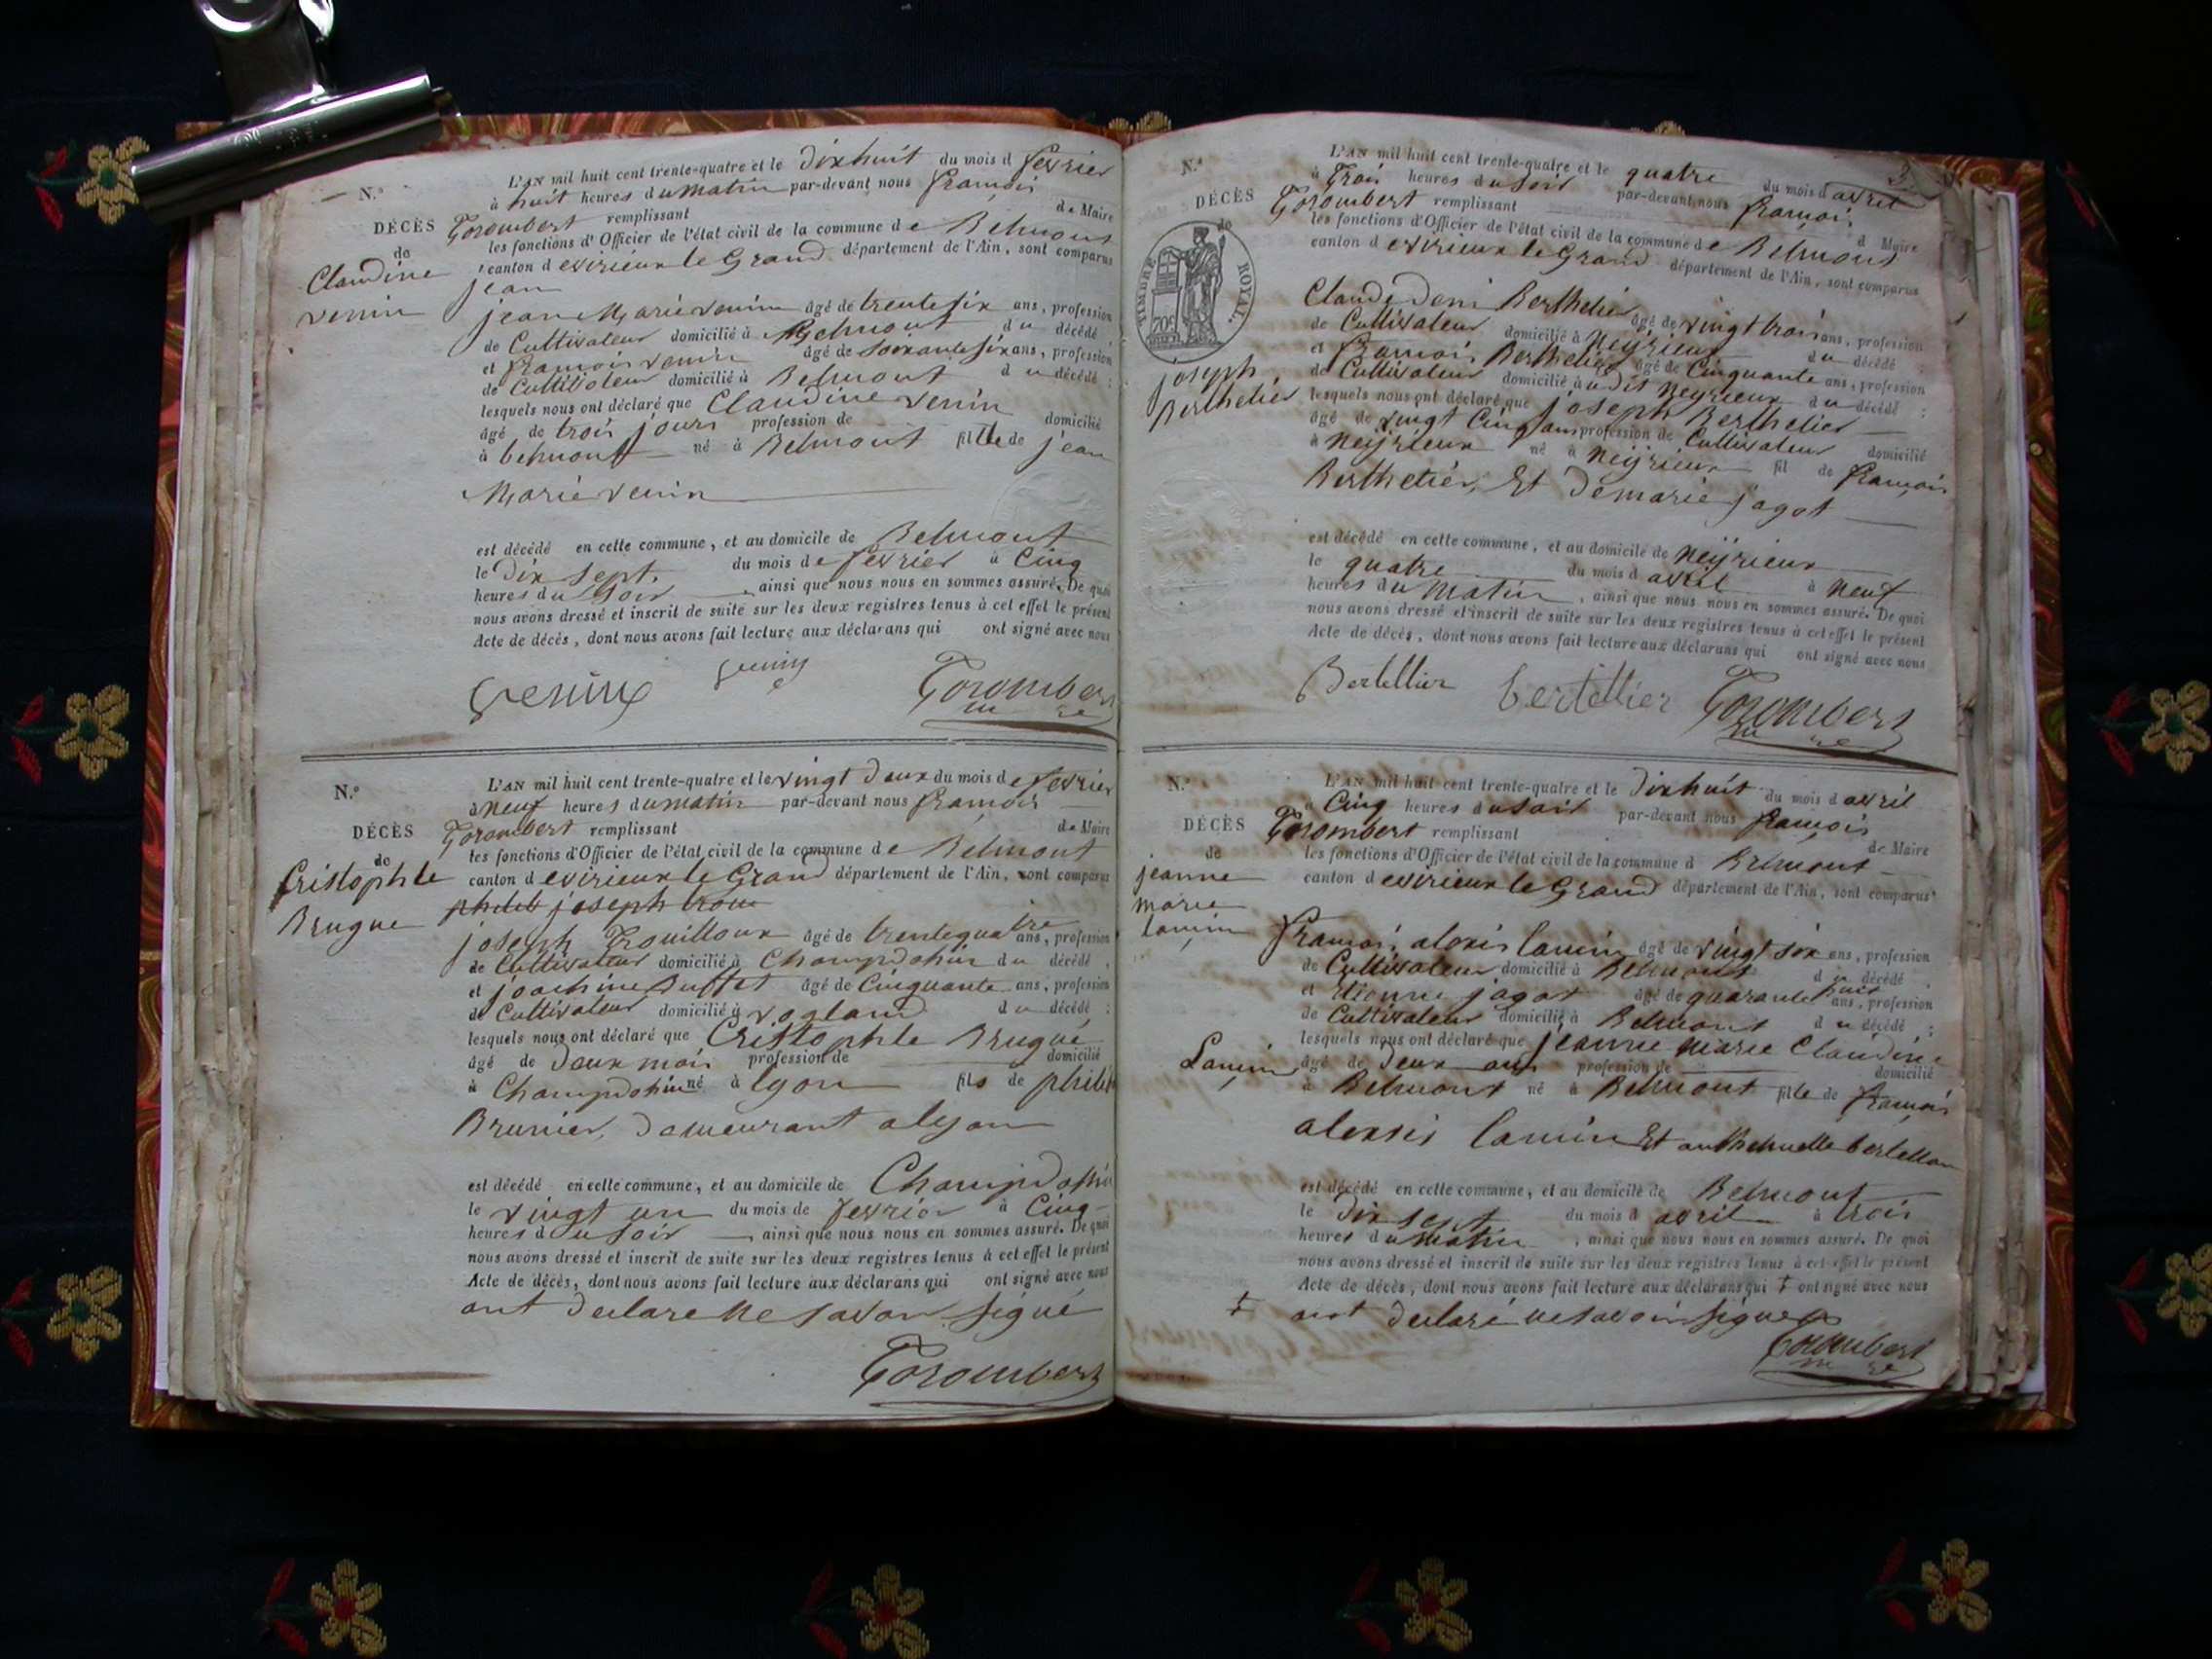 N.º
DÉCÈS
de
Claudine
venin
L'AN mil huit cent trente-quatre et le Dixhuit du mois d fevrier
à huit heures du matin par-devant nous francois
Torombert remplissant de Maire
les fonctions d'Officier de l'état civil de la commune de Belmont
canton d evirieux le Grand département de l'Ain, sont comparus
jean
jean Marie venin âgé de trente six ans, profession
de Cultivateur domicilié à Belmont du décédé,
et francois venin âgé de soixante six ans, profession
de Cultivateur domicilié à Belmont du décédé;
lesquels nous ont déclaré que Claudine venin
âgé de trois jours profession de domicilié
à belmont né à Belmont fille de jean
Marie venin
est décédé en cette commune, et au domicile de Belmont
le Dix sept du mois de fevrier à Cinq
heures du soir, ainsi que nous nous en sommes assuré. De quoi
nous avons dressé et inscrit de suite sur les deux registres tenus à cet effet le présent
Acte de décès, dont nous avons fait lecture aux déclarans qui ont signé avec nous
Venin venin Torombert
N.º
DÉCÈS
de
Cristophle
Brugue
L'AN mil huit cent trente-quatre et le vingt Deux du mois de fevrier
à neuf heures du matin par-devant nous francois
Torombert remplissant de Maire
les fonctions d'Officier de l'état civil de la commune de Belmont
canton d evirieux le Grand département de l'Ain, sont comparus
joseph trou
joseph Trouilloux âgé de trente quatre ans, profession
de Cultivateur domicilié à Champdohin du décédé,
et joachine Buffet âgé de Cinquante ans, profession
de Cultivateur domicilié à vogland du décédé;
lesquels nous ont déclaré que Cristophle Brugue
âgé de Deux mois profession de domicilié
à Champdohin né à lyon fils de philip
Brunier, Demeurant a lyon
est décédé en cette commune, et au domicile de Champdohin
le vingt un du mois de fevrier à Cinq
heures du soir, ainsi que nous nous en sommes assuré. De quoi
nous avons dressé et inscrit de suite sur les deux registres tenus à cet effet le présent
Acte de décès, dont nous avons fait lecture aux déclarans qui ont signé avec nous
ont declare ne savoir signé
Torombert
3
N.º
DÉCÈS
de
TIMBRE ROYAL.
70c
joseph
Berthelier
L'AN mil huit cent trente-quatre et le quatre du mois d avril
à Trois heures du soir par-devant nous francois
Torombert remplissant d Maire
les fonctions d'Officier de l'état civil de la commune de Belmont
canton d evirieux le Grand département de l'Ain, sont comparus
Claude Deni Berthelier âgé de vingt trois ans, profession
de Cultivateur domicilié à Neyrieux du décédé
et francois Berthelier âgé de Cinquante ans, profession
de Cultivateur domicilié à udit Neyrieux du décédé;
lesquels nous ont déclaré que joseph Berthelier
âgé de vingt Cinq ans profession de Cultivateur domicilié
à Neyrieux né à Neyrieux fil de francois
Berthelier, Et De marie jagot
est décédé en cette commune, et au domicile de Neyrieux
le quatre du mois d avril à neuf
heures du matin, ainsi que nous nous en sommes assuré. De quoi
nous avons dressé et inscrit de suite sur les deux registres tenus à cet effet le présent
Acte de décès, dont nous avons fait lecture aux déclarans qui ont signé avec nous
Bertellier bertellier Torombert
N.º
DÉCÈS
de
jeanne
marie
lamin
L'AN mil huit cent trente-quatre et le Dixhuit du mois d avril
à Cinq heures du soir par-devant nous francois
Torombert remplissant de Maire
les fonctions d'Officier de l'état civil de la commune d Belmont
canton d evirieux le Grand département de l'Ain, sont comparus
francois alexis lamin âgé de vingt six ans, profession
de Cultivateur domicilié à Belmont du décédé
et Etienne jagot âgé de quarante huit ans, profession
de Cultivateur domicilié à Belmont du décédé;
lesquels nous ont déclaré que jeanne marie Claudine
Lamin âgé de Deux ans profession de domicilié
à Belmont né à Belmont fille de francois
alexis lamin Et anthelmette bertellon
est décédé en cette commune, et au domicile de Belmont
le Dix sept du mois d avril à trois
heures du matin, ainsi que nous nous en sommes assuré. De quoi
nous avons dressé et inscrit de suite sur les deux registres tenus à cet effet le présent
Acte de décès, dont nous avons fait lecture aux déclarans qui ‡ ont signé avec nous
‡ ont declaré ne savoir signer
Torombert